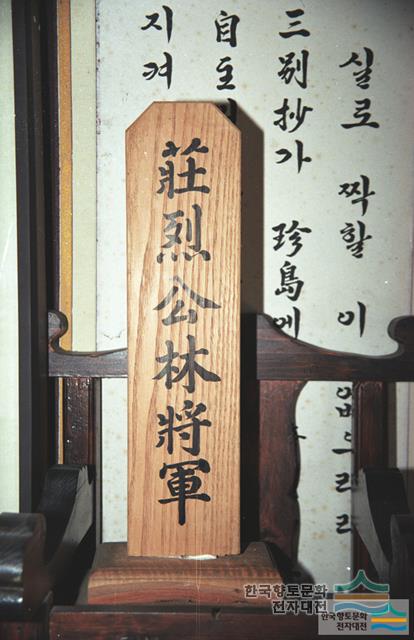 莊烈公林將軍
실로 짝할 이 없으리라
三别抄가 珍島에
自主
지켜
한국향토문화
전자대전
한국향토문화
전자대전